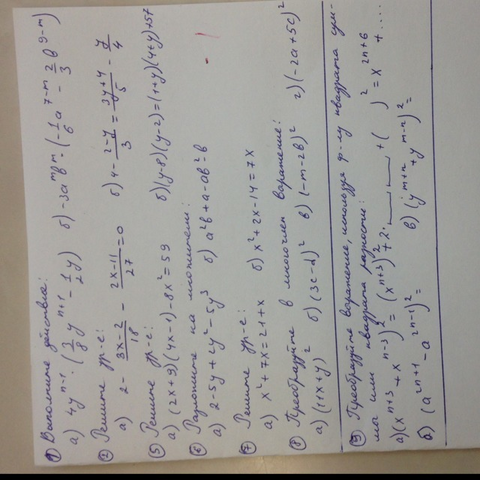 ① Выполните действия:
а) 4y^(n-1) · (3/8 y^(n+1) - 1/2 y) б) -3a^m b^m · (-1/6 a^(7-m) - 2/3 b^(9-m))
② Решите ур-е:
а) 2 - (3x-2)/18 - (2x-11)/27 = 0 б) 4 - (2-y)/3 = (3y+4)/5 - y/4
⑤ Решите ур-е:
а) (2x+9)(4x-1)-8x²=59 б) (y-8)(y-2)=(1+y)(4+y)+57
⑥ Разложите на множители:
а) 2-5y+2y²-5y³ б) a²b+a-ab²-b
⑦ Решите ур-е:
а) x²+7x=21+x б) x²+2x-14=7x
⑧ Преобразуйте в многочлен выражение:
а) (1+x+y)² б) (3c-d)² в) (-m-2b)² г) (-2a+5c)²
⑨ Преобразуйте выражение, используя ф-лу квадрата сум-
мы или квадрата разности:
а) (x^(n+3) + x^(n-3))² = (x^(n+3))² + 2·___·___ + ( )² = x^(2n+6) + ....
б) (a^(2n+1) - a^(2n-1))² = в) (y^(m+n) + y^(m-n))² =